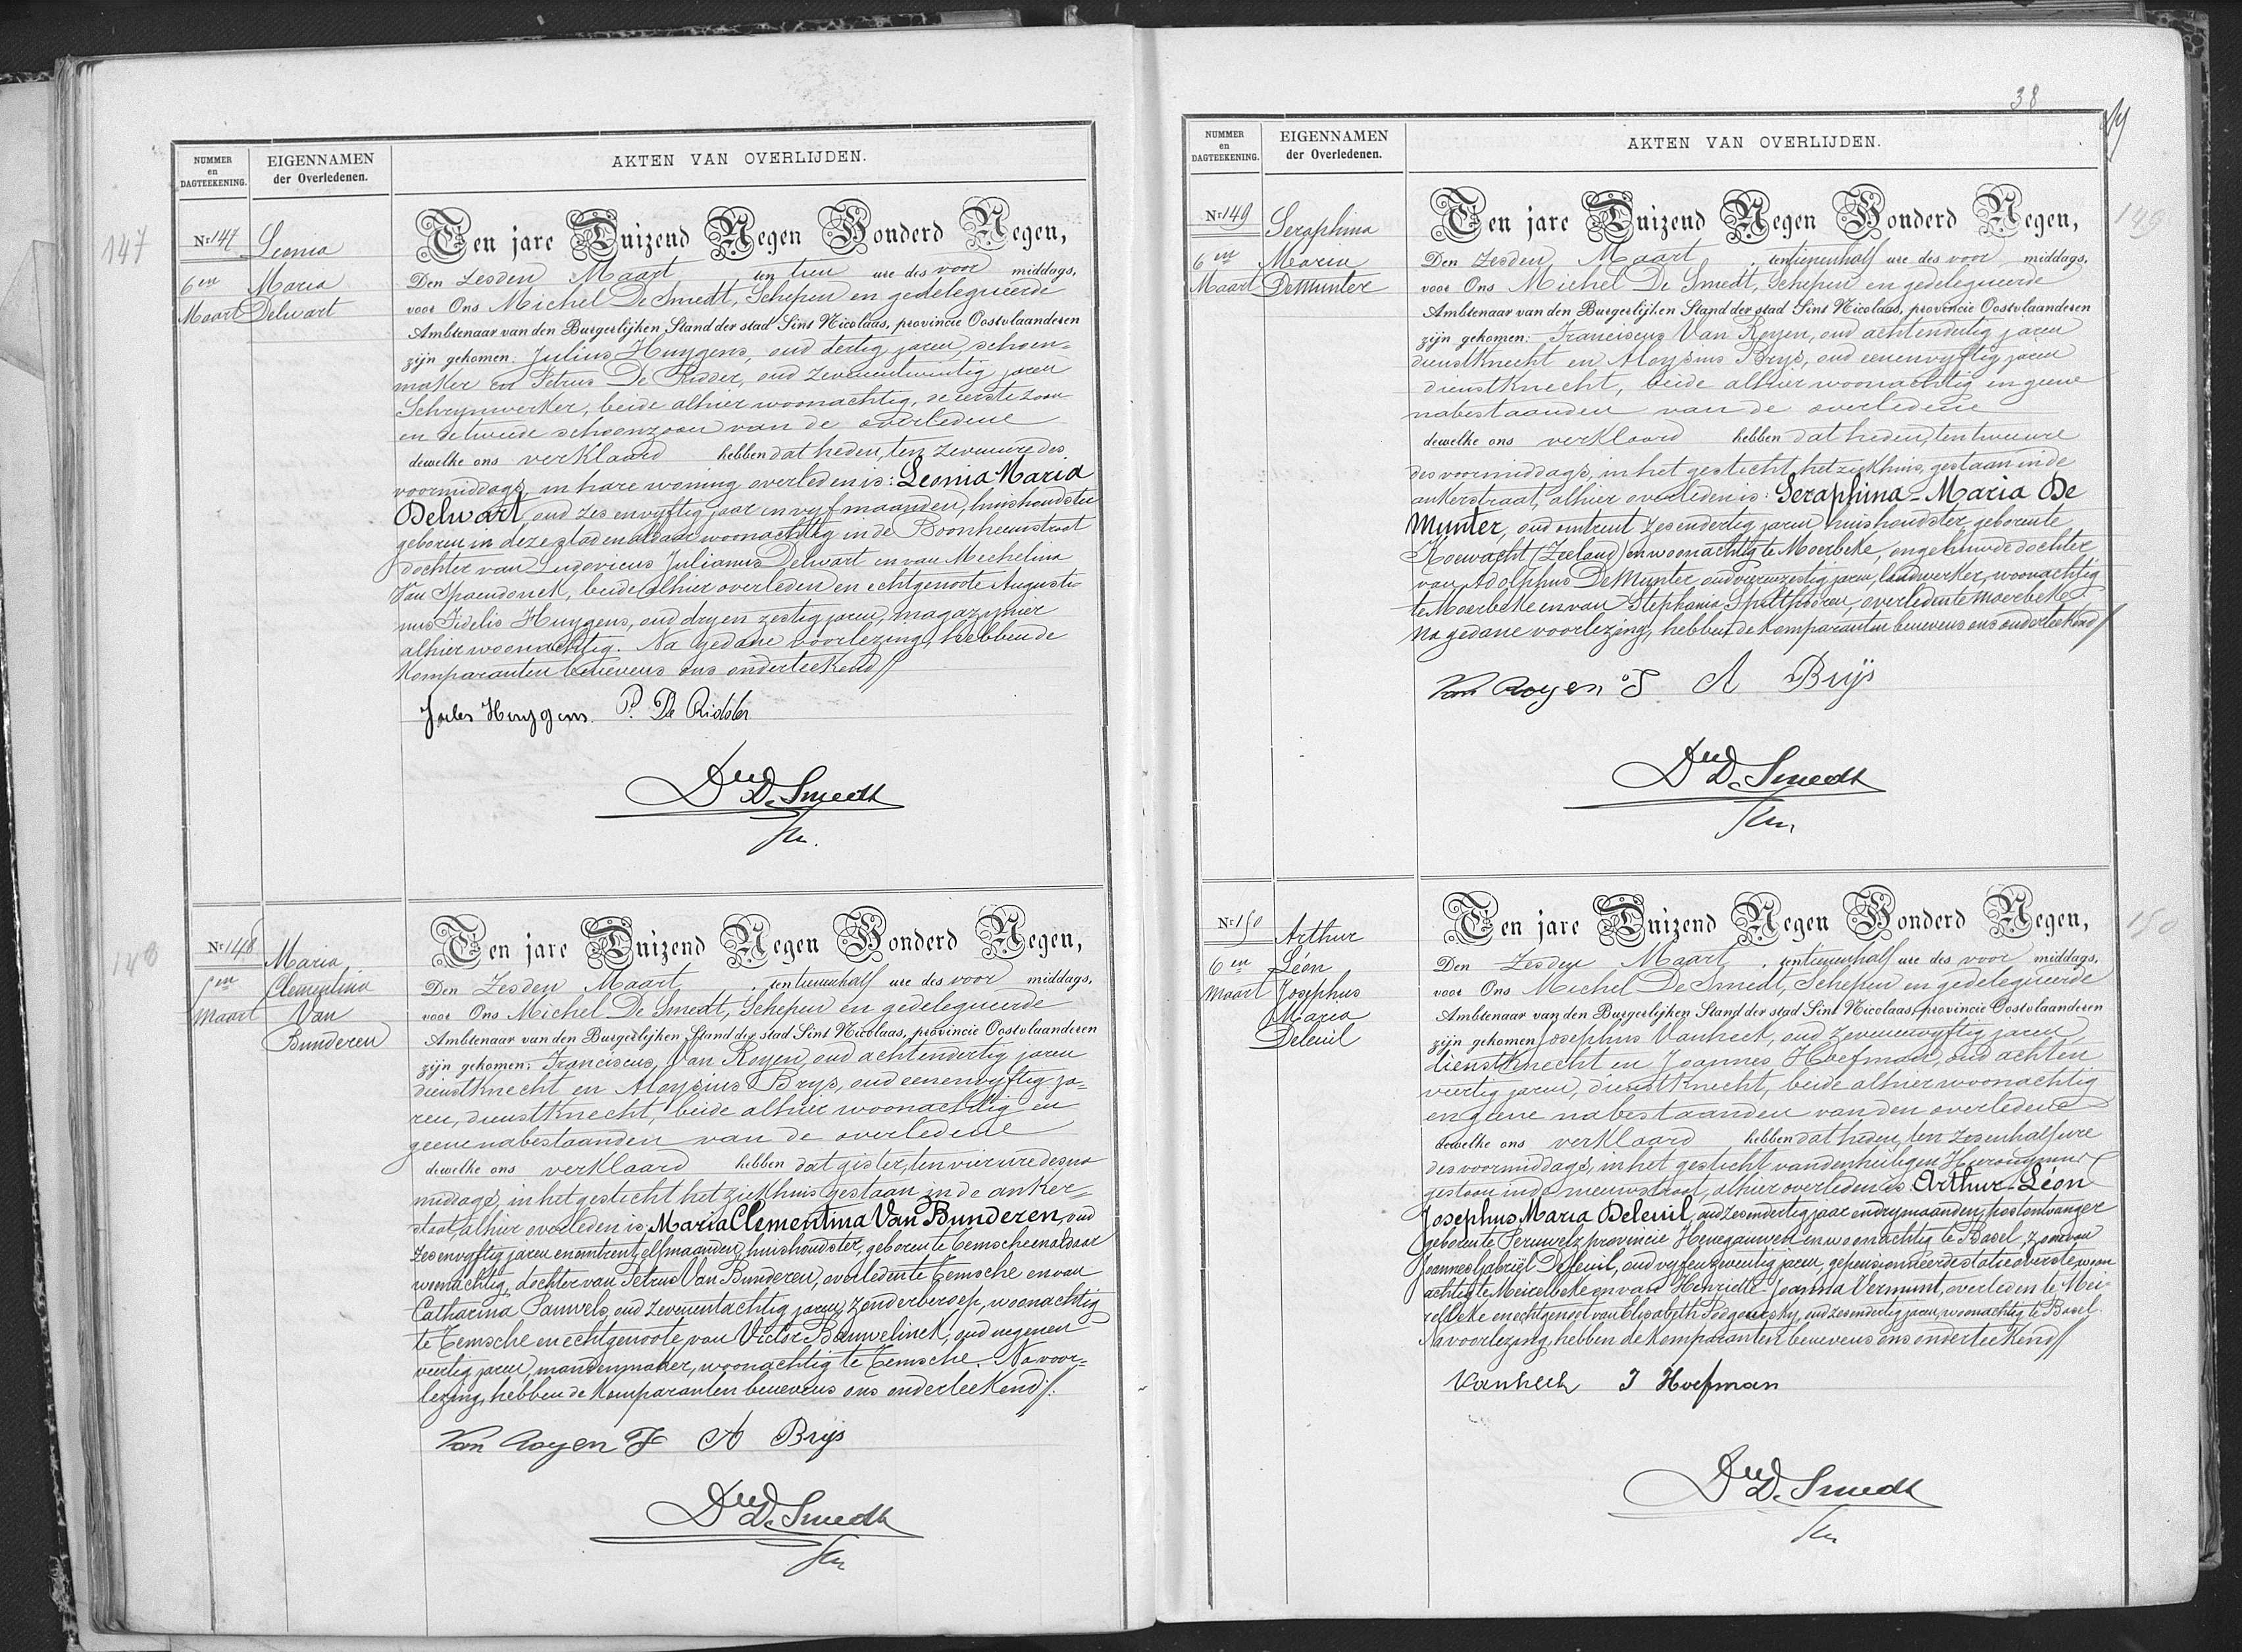 NUMMER en DAGTEEKENING.
EIGENNAMEN der Overledenen.
AKTEN VAN OVERLIJDEN.
147
Nr 147
6en Maart
Leonia
Maria
Delwart
Ten jare Tuizend Negen Honderd Negen,
Den zesden Maart, ten tien ure des voor middags,
voor Ons Michel De Smedt, Schepen en gedelegueerde
Ambtenaar van den Burgerlijken Stand der stad Sint Nicolaas, provincie Oostvlaanderen
zijn gekomen: Julius Huygens, oud dertig jaren, schoen=
maker en Petrus De Ridder, oud zevenentwintig jaren
Schrynwerker, beide alhier woonachtig, de eerste zoon
en de tweede schoonzoon van de overledene
dewelke ons verklaard hebben dat heden, ten zeven ure des
voormiddags, in hare woning overleden is: Leonia Maria
Delwart, oud zes envyftig jaar en vyf maanden, huishoudster
geboren in deze stad en aldaar woonachtig in de Boonheimstraat
dochter van Ludovicus Julianus Delwart en van Mechelina
Van Spaendonck, beide alhier overleden en echtgenoote Augusti=
nus Fidelis Huygens, oud dry en zestig jaren, magazynier
alhier woonachtig. Na gedane voorlezing, hebben de
Komparanten benevens ons onderteekend //
Jules Huygens. P. De Ridder
Dr D. Smedt
148
Nr 148
6en maart
Maria
Clementina
Van
Bunderen
Ten jare Tuizend Negen Honderd Negen,
Den Zesden Maart, ten tienenhalf ure des voor middags,
voor Ons Michel De Smedt, Schepen en gedelegueerde
Ambtenaar van den Burgerlijken Stand der stad Sint Nicolaas, provincie Oostvlaanderen
zijn gekomen: Franciscus Van Royen, oud achtendertig jaren
dienstknecht en Aloysius Brys, oud eenenvyftig ja=
ren, dienstknecht, beide alhier woonachtig en
geene nabestaanden van de overledene
dewelke ons verklaard hebben dat gister, ten vier ure des na
middags, in het gesticht het ziekhuis gestaan in de anker=
straat, alhier overleden is: Maria Clementina Van Bunderen, oud
zesenvyftig jaren en omtrent elf maanden, huishoudster, geboren te Temsche en aldaar
woonachtig, dochter van Petrus Van Bunderen, overleden te Temsche en van
Catharina Pauwels, oud zevenentachtig jaren, zonder beroep, woonachtig
te Temsche en echtgenoote van Victor Bauwelinck, oud negenen
veertig jaren, mandenmaker, woonachtig te Temsche. Na voor=
lezing, hebben de Komparanten benevens ons onderteekend //.
Van Royen F A Brÿs
Dr D. Smedt
38
NUMMER en DAGTEEKENING.
EIGENNAMEN der Overledenen.
AKTEN VAN OVERLIJDEN.
149
Nr 149
6en Maart
Seraphina
Maria
De Munter
Ten jare Tuizend Negen Honderd Negen,
Den zesden Maart, ten tienenhalf ure des voor middags,
voor Ons Michel De Smedt, Schepen en gedelegueerde
Ambtenaar van den Burgerlijken Stand der stad Sint Nicolaas, provincie Oostvlaanderen
zijn gekomen: Franciscus Van Royen, oud achtendertig jaren
dienstknecht en Aloysius Brys, oud eenenvyftig jaren
dienstknecht, beide alhier woonachtig en geene
nabestaanden van de overledene
dewelke ons verklaard hebben dat heden, ten twee ure
des voormiddags, in het gesticht het ziekhuis, gestaan in de
ankerstraat, alhier overleden is: Seraphina-Maria De
Munter, oud omtrent zesendertig jaren, huishoudster, geboren te
Koewacht (Zeeland) en woonachtig te Moerbeke, ongehuwde dochter
van Adolphus De Munter, oud vierenzestig jaren, landwerker, woonachtig
te Moerbeke en van Stephania Spelthooren, overleden te Moerbeke.
Na gedane voorlezing, hebben de Komparanten benevens ons onderteekend //
Van Royen F A Brÿs
Dr D. Smedt
150
Nr 150
6en maart
Arthur
Léon
Josephus
Maria
Deleuil
Ten jare Tuizend Negen Honderd Negen,
Den Zesden Maart, ten tienenhalf ure des voor middags,
voor Ons Michel De Smedt, Schepen en gedelegueerde
Ambtenaar van den Burgerlijken Stand der stad Sint Nicolaas, provincie Oostvlaanderen
zijn gekomen Josephus Vanheck, oud zevenenvyftig jaren
dienstknecht en Joannes Hoefman, oud achten
veertig jaren, dienstknecht, beide alhier woonachtig
en geene nabestaanden van den overledene
dewelke ons verklaard hebben dat heden, ten zesenhalf ure
des voormiddags, in het gesticht van den heiligen Hieronymus
gestaan in de nieuwstraat, alhier overleden is: Arthur-Léon
Josephus Maria Deleuil, oud zesendertig jaar en dry maanden, postontvanger
geboren te Peruwelz provincie Henegauwen en woonachtig te Basel, zoon van
Joannes Gabriël Deleuil, oud vyfenzeventig jaren, gepensionneerde statieoverste, woon
achtig te Meirelbeke en van Henriette-Joanna Vermunt, overleden te Mei=
relbeke en echtgenoot van Elisabeth Podgouesky, oud zesendertig jaren, woonachtig te Basel.
Na voorlezing, hebben de Komparanten benevens ons onderteekend //
Vanheck J Hoefman
Dr D. Smedt